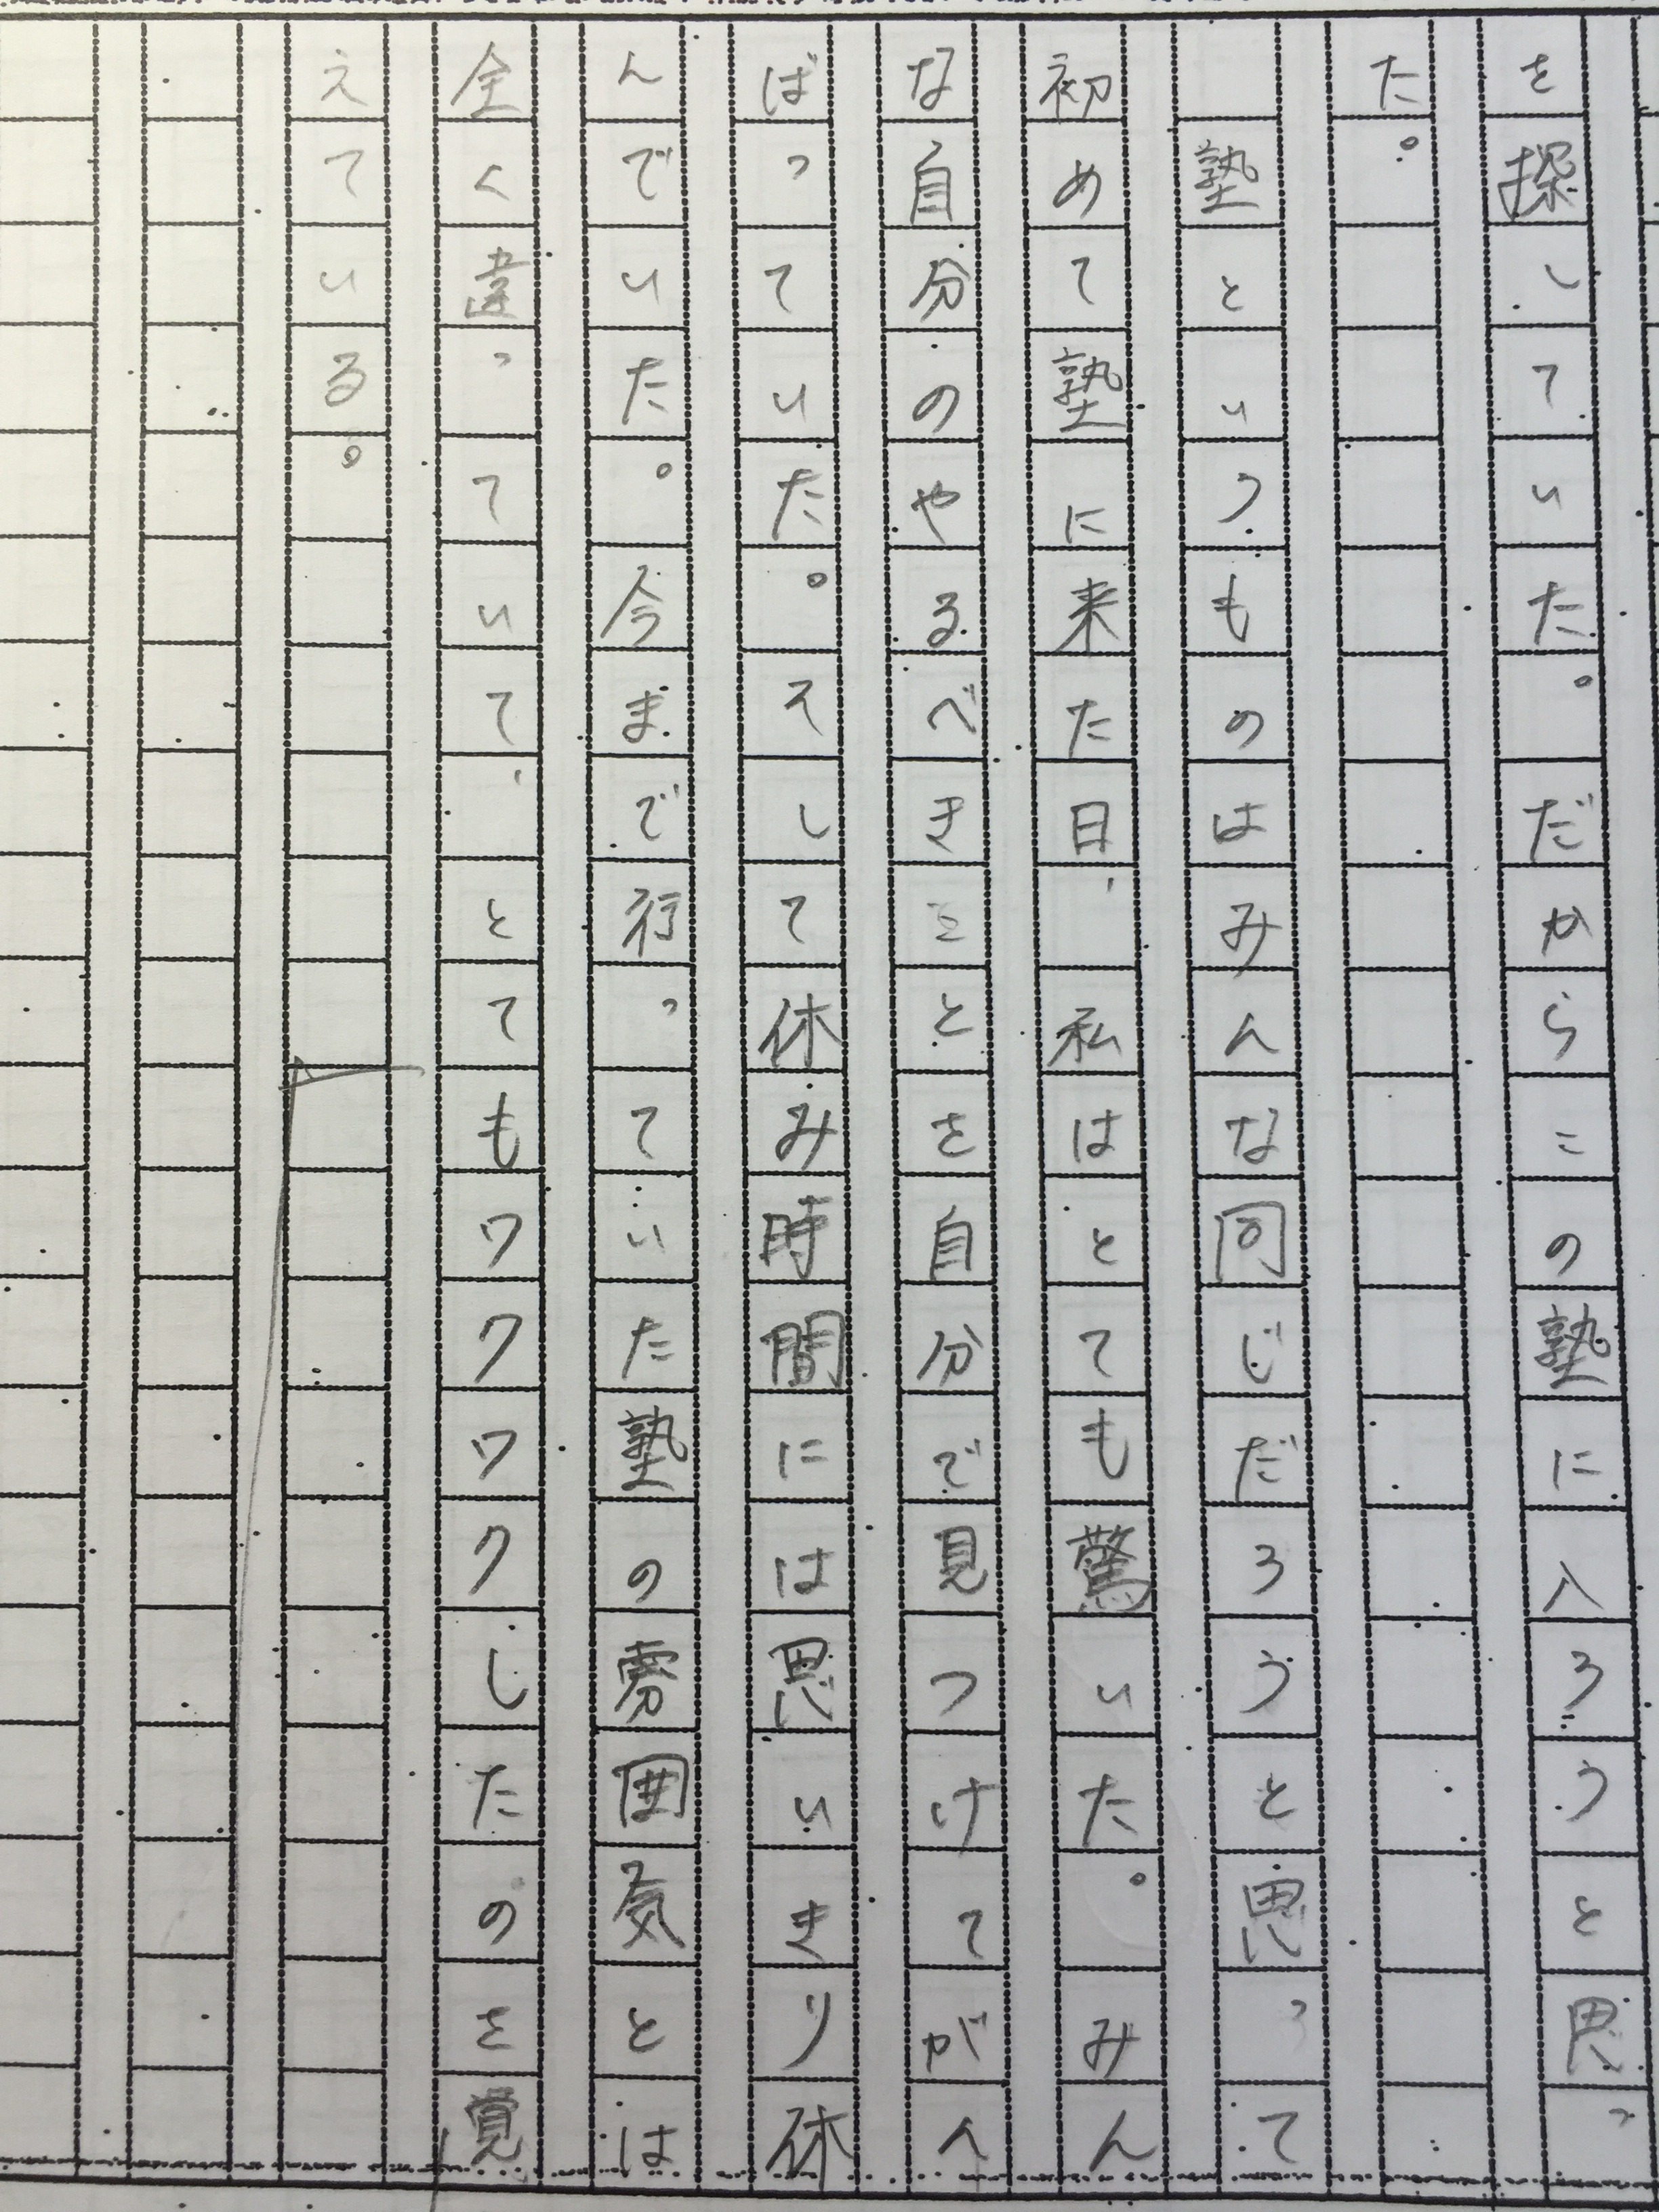 を探していた。だからこの塾に入ろうと思っ
た。
塾というものはみんな同じだろうと思って
初めて塾に来た日、私はとても驚いた。みん
な自分のやるべきことを自分で見つけてがん
ばっていた。そして休み時間には思いきり休
んでいた。今まで行っていた塾の雰囲気とは
全く違っていて、とてもワクワクしたのを覚
えている。